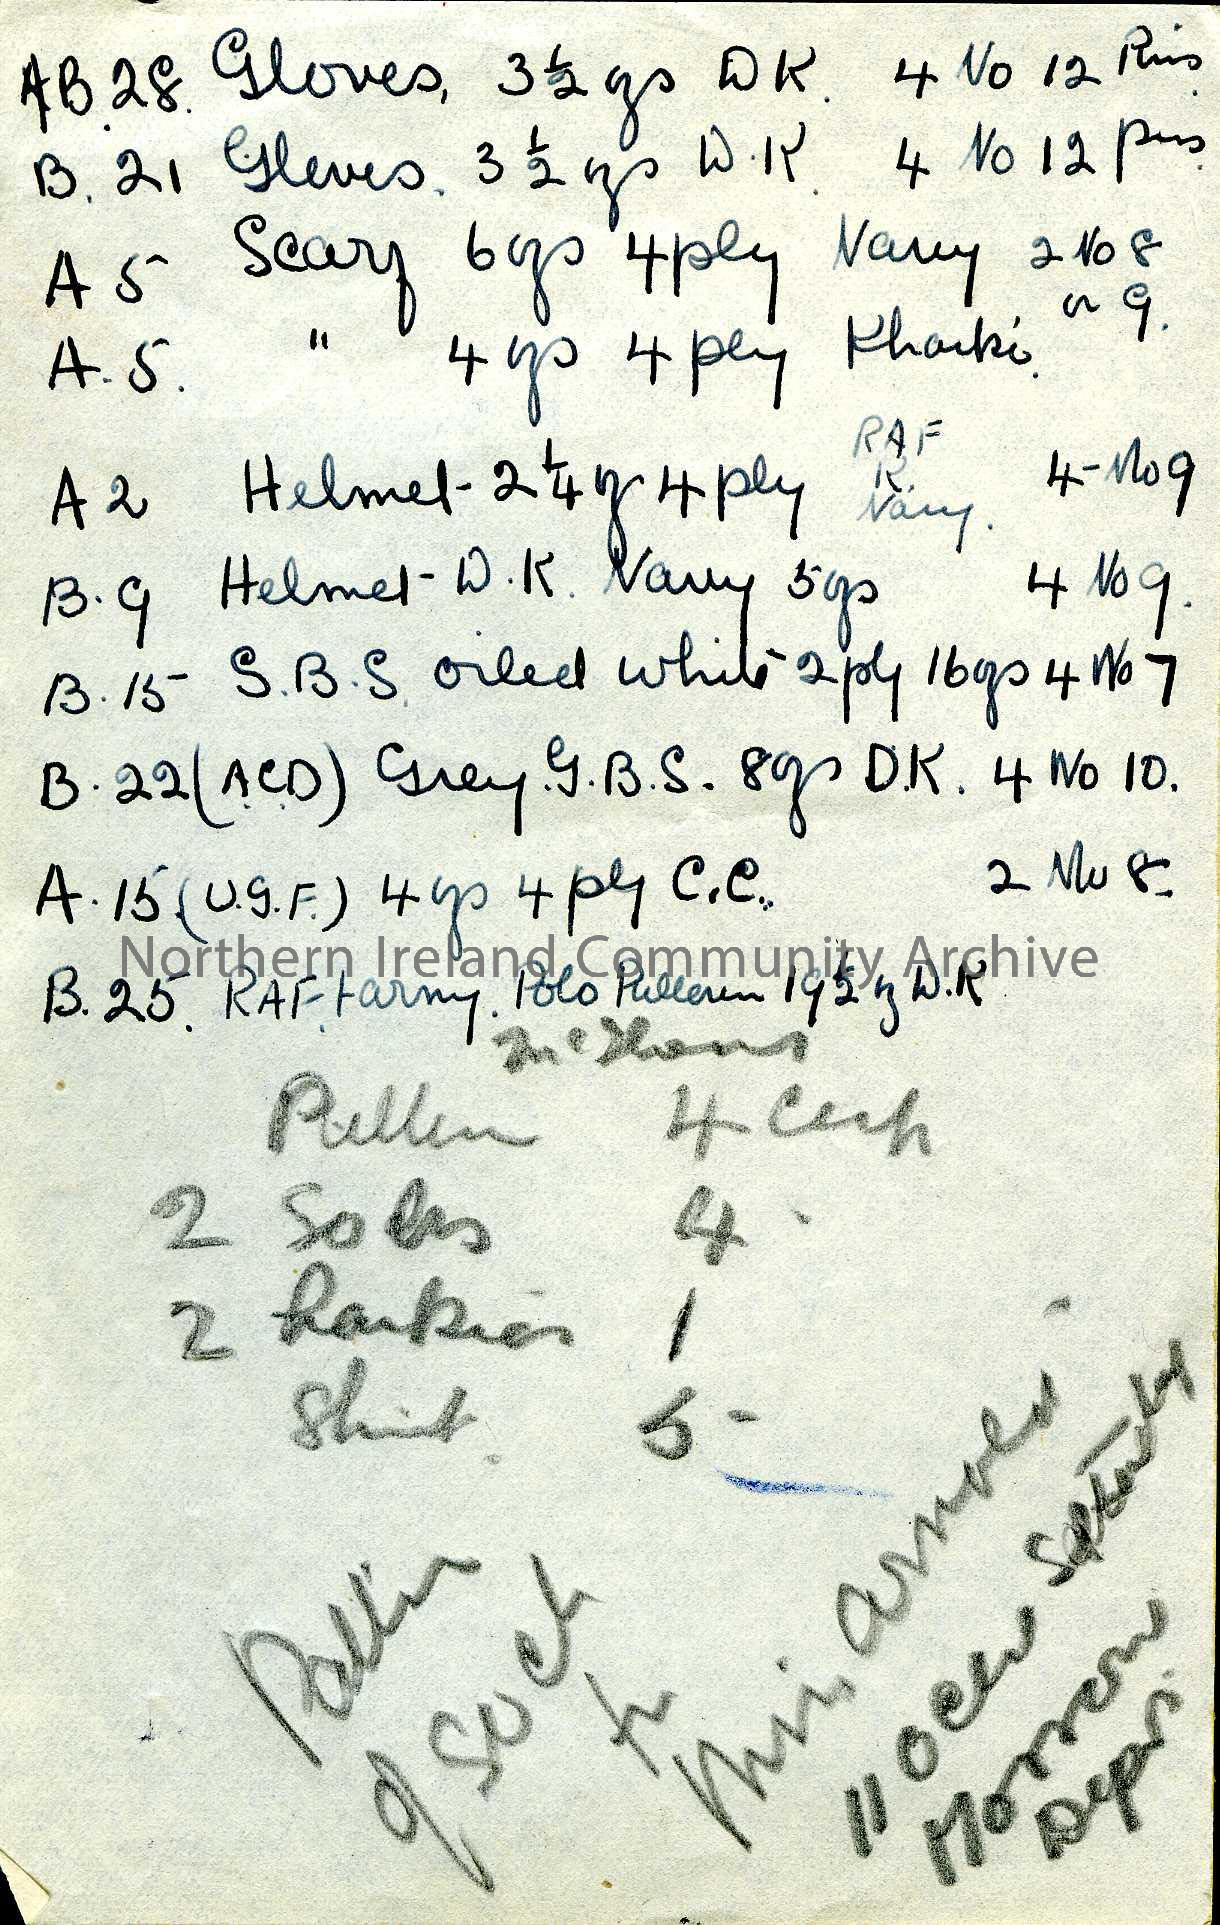 AB.28. Gloves, 3½ ozs D K. 4 No 12 Pins.
B. 21 Gloves. 3½ ozs D.K. 4 No 12 pins.
A 5 Scarf 6 ozs 4 ply Navy 2 No 8
or 9.
A. 5. " 4 ozs 4 ply Kharki.
A 2 Helmet - 2¼ oz 4 ply RAF R. Navy. 4 - No 9
B. 9 Helmet - D.K. Navy 5 ozs 4 No 9.
B. 15 S.B.S. oiled white 2 ply 16 ozs 4 No 7
B. 22 (A.C.D) Grey. G.B.S. 8 ozs D.K. 4 No 10.
A. 15. (U.G.F.) 4 ozs 4 ply C.C. 2 No 8.
Northern Ireland Community Archive
B. 25. RAF. + army. Polo Pullover 19½ oz D.K
Pullover 4
2 Socks 4
2 hankies 1
Shirt. 5 -
Pattern
of Sock
to
Miss Arnold
11 September
Depot